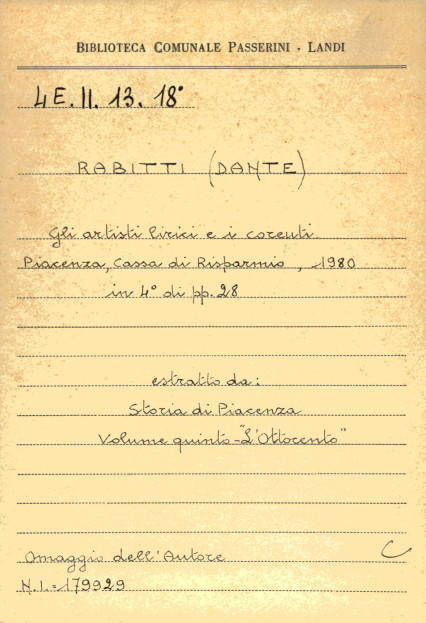 BIBLIOTECA COMUNALE PASSERINI - LANDI
4E.II.13.18°
RABITTI (DANTE)
Gli artisti lirici e i coreuti
Piacenza, Cassa di Risparmio, 1980
in 4° di pp. 28
estratto da:
Storia di Piacenza
Volume quinto - "L'Ottocento"
Omaggio dell'Autore C
N.I. = 179929